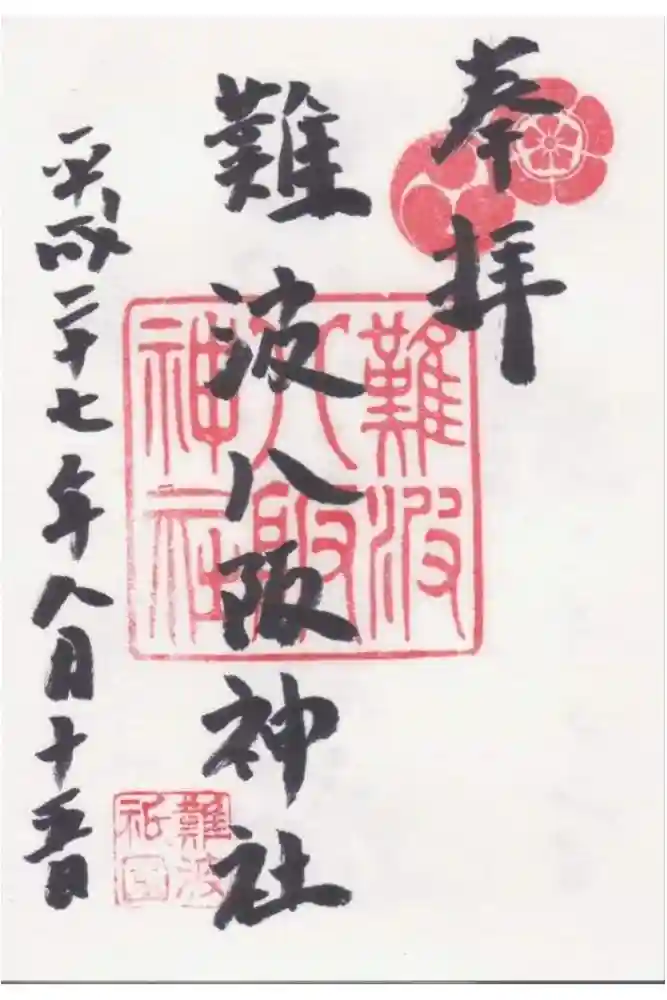 奉拝
難波八阪神社
難波
八阪
神社
平成二十七年八月十五日
難波
祇園